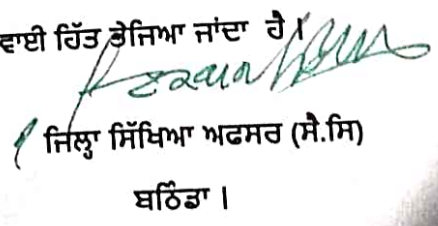 ਵਾਈ ਹਿੱਤ ਭੇਜਿਆ ਜਾਂਦਾ ਹੈ।
ਜਿਲ੍ਹਾ ਸਿੱਖਿਆ ਅਫਸਰ (ਸੈ.ਸਿ)
ਬਠਿੰਡਾ।